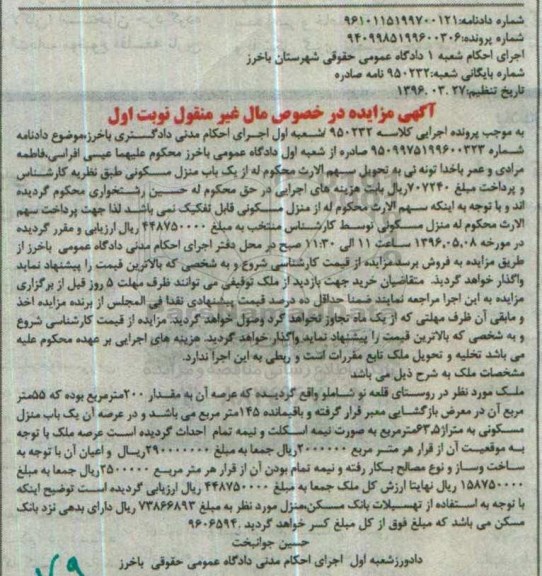 شماره دادنامه:۹۶۱۰۱۱۵۱۹۹۷۰۰۱۲۱
شماره پرونده:۹۴۰۹۹۸۵۱۹۹۶۰۰۳۰۶
اجرای احکام شعبه ۱ دادگاه عمومی حقوقی شهرستان باخرز
شماره بایگانی شعبه:۹۵۰۲۳۲ نامه صادره
تاریخ تنظیم:۱۳۹۶.۰۳.۲۷
آگهی مزایده در خصوص مال غیر منقول نوبت اول
به موجب پرونده اجرایی کلاسه ۹۵۰۲۳۲ /شعبه اول اجرای احکام مدنی دادگستری باخرز،موضوع دادنامه
شماره ۹۵۰۹۹۷۵۱۹۹۶۰۰۳۲۳ صادره از شعبه اول دادگاه عمومی باخرز محکوم علیهما عیسی افراسی،فاطمه
مرادی و عمر باخدا تونه ئی به تحویل سهم الارث محکوم له از یک باب منزل مسکونی طبق نظریه کارشناس
و پرداخت مبلغ ۷۰۷۲۴۰ریال بابت هزینه های اجرایی در حق محکوم له حسین رشتخواری محکوم گردیده
اند و با توجه به اینکه سهم الارث محکوم له از منزل مسکونی قابل تفکیک نمی باشد لذا جهت پرداخت سهم
الارث محکوم له منزل مسکونی توسط کارشناس منتخب به مبلغ ۴۴۸۷۵۰۰۰۰ ریال ارزیابی و مقرر گردیده
در مورخه ۱۳۹۶.۰۵.۰۸ ساعت ۱۱ الی ۱۱:۳۰ صبح در محل دفتر اجرای احکام مدنی دادگاه عمومی باخرز از
طریق مزایده به فروش برسد،مزایده از قیمت کارشناسی شروع و به شخصی که بالاترین قیمت را پیشنهاد نماید
واگذار خواهد گردید. متقاضیان خرید جهت بازدید از ملک توقیفی می توانند ظرف مهلت ۵ روز قبل از برگزاری
مزایده به این اجرا مراجعه نمایند ضمنا حداقل ده درصد قیمت پیشنهادی نقدا فی المجلس از برنده مزایده اخذ
و مابقی آن ظرف مهلتی که از یک ماه تجاوز نخواهد کرد وصول خواهد گردید. مزایده از قیمت کارشناسی شروع
و به شخصی که بالاترین قیمت را پیشنهاد نماید واگذار خواهد گردید. هزینه های اجرایی بر عهده محکوم علیه
می باشد تخلیه و تحویل ملک تابع مقررات است و ربطی به این اجرا ندارد.
مشخصات ملک به شرح ذیل می باشد
ملک مورد نظر در روستای قلعه نو شاملو واقع گردیده که عرصه آن به مقدار ۲۰۰مترمربع بوده که ۵۵متر
مربع آن در معرض بازگشایی معبر قرار گرفته و باقیمانده ۱۴۵متر مربع می باشد و در عرصه آن یک باب منزل
مسکونی به متراژ۶۳.۵مترمربع به صورت نیمه اسکلت و نیمه تمام احداث گردیده است عرصه ملک با توجه
به موقعیت آن از قرار هر متر مربع ۲۰۰۰۰۰۰ریال جمعا به مبلغ ۲۹۰۰۰۰۰۰۰ریال و اعیان آن با توجه به
ساخت وساز و نوع مصالح بکار رفته و نیمه تمام بودن آن از قرار هر متر مربع ۲۵۰۰۰۰۰ریال جمعا به مبلغ
۱۵۸۷۵۰۰۰۰ ریال نهایتا ارزش کل ملک جمعا به مبلغ ۴۴۸۷۵۰۰۰۰ ریال ارزیابی گردیده است توضیح اینکه
با توجه به استفاده از تسهیلات بانک مسکن،منزل مورد نظر به مبلغ ۷۳۸۶۶۸۹۳ ریال دارای بدهی نزد بانک
مسکن می باشد که مبلغ فوق از کل مبلغ کسر خواهد گردید .۹۶۰۶۵۹۴
حسین جوانبخت
دادورزشعبه اول اجرای احکام مدنی دادگاه عمومی حقوقی باخرز